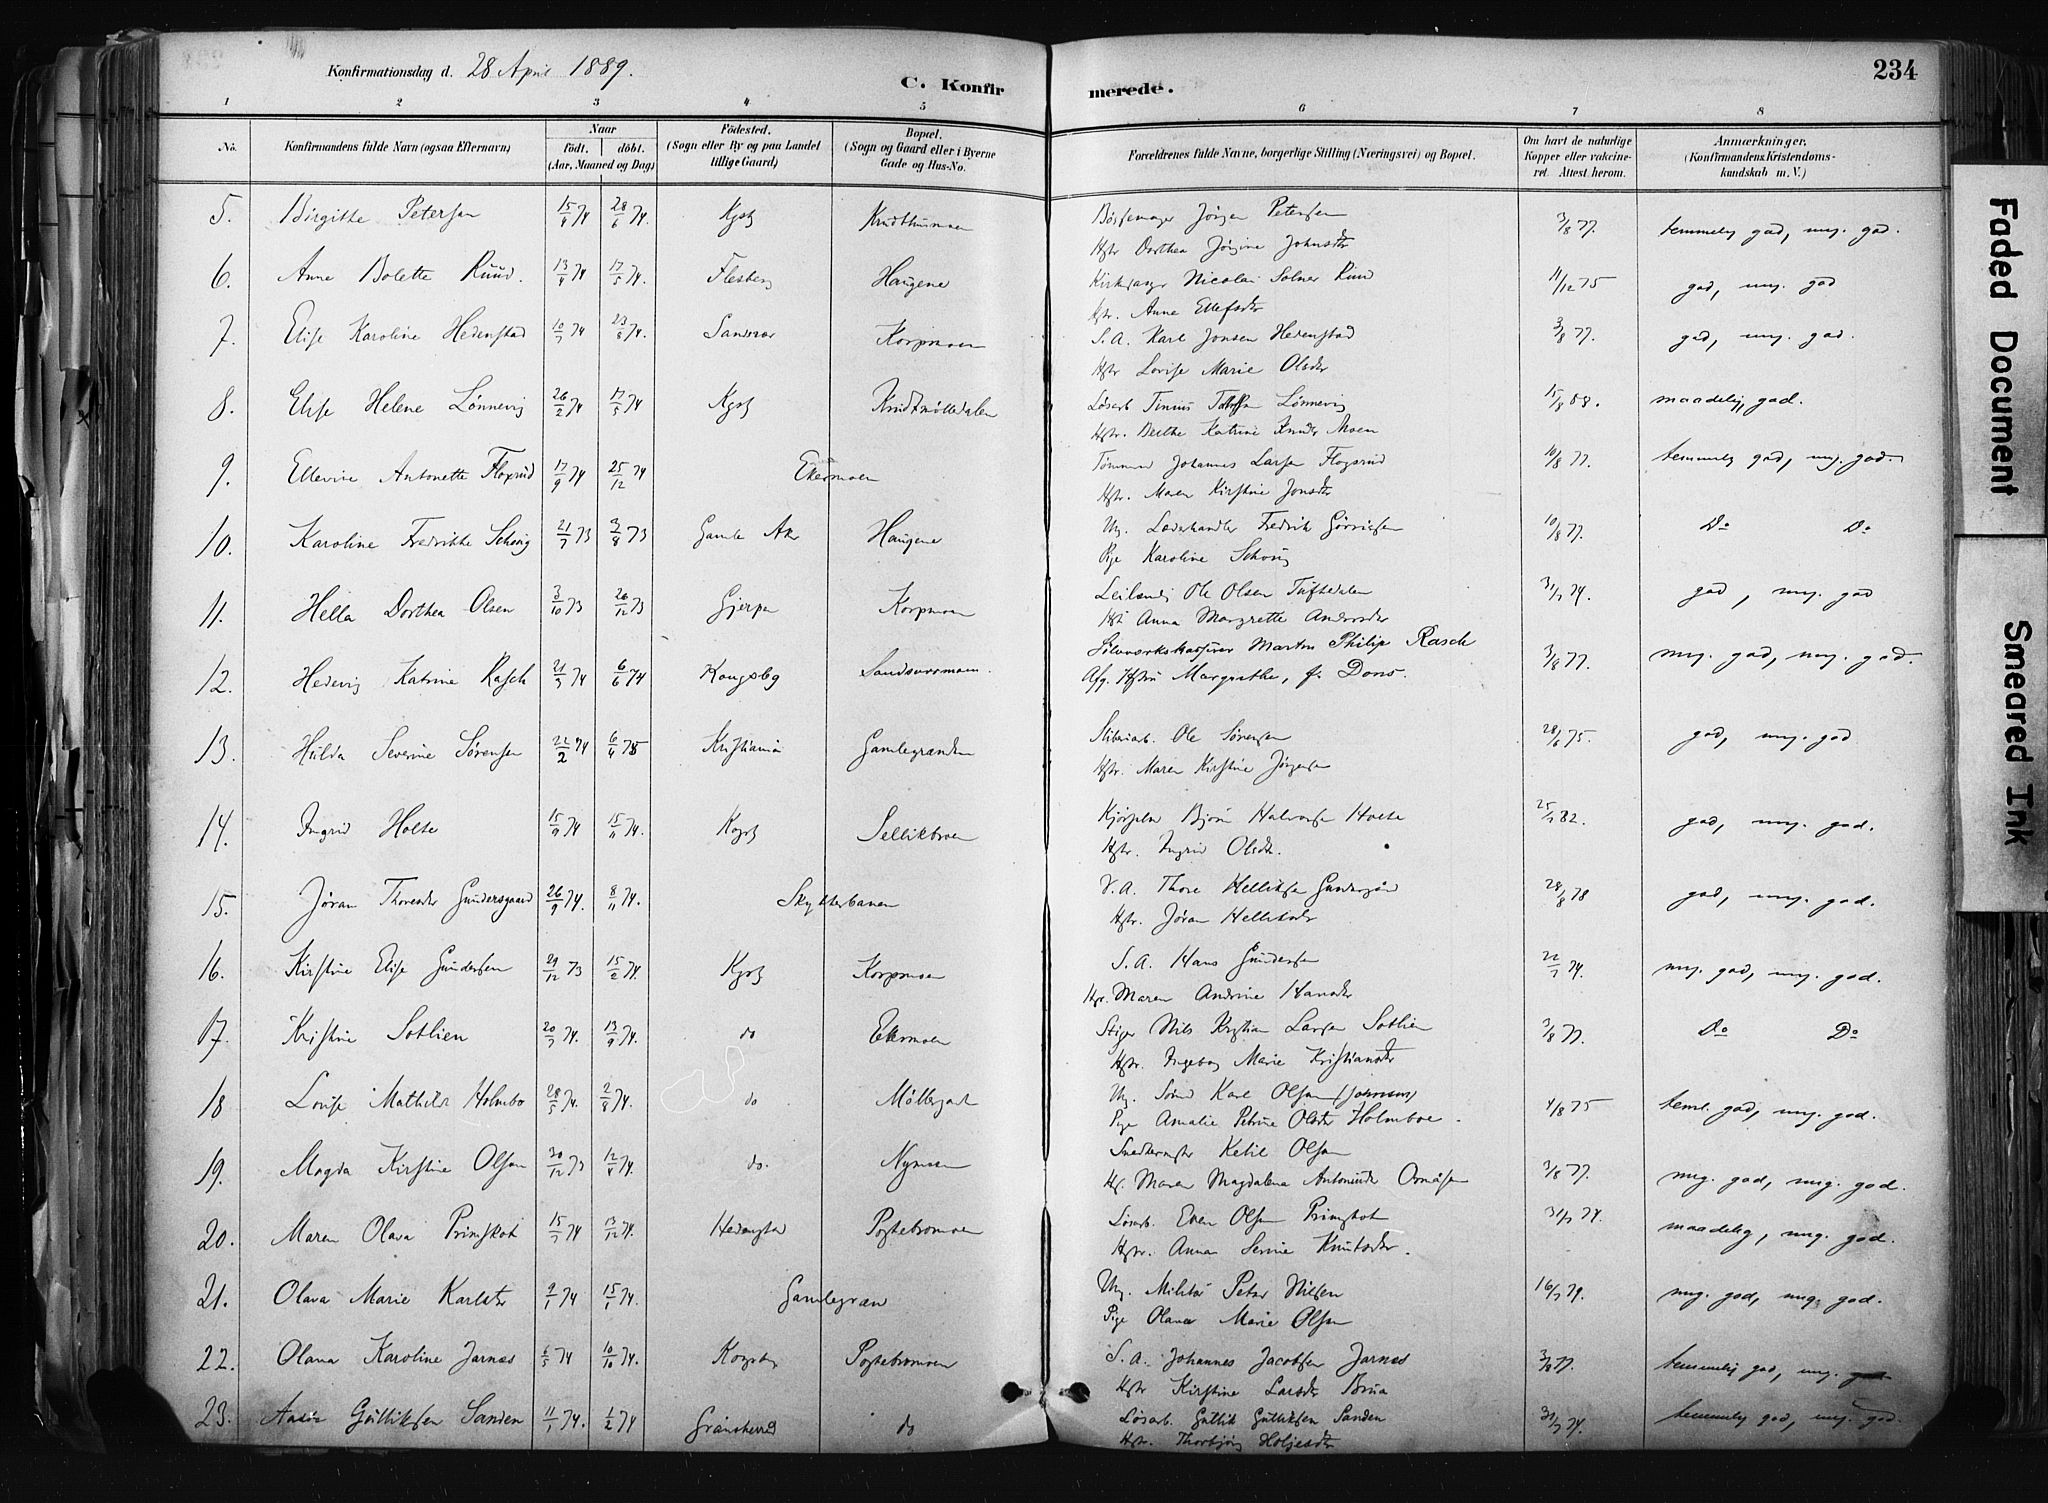 Konfirmationsdag d. 28 April 1889.
C. Konfirmerede.
234
1 2 3 4 5 6 7 8
No.
Konfirmandens fulde Navn (ogsaa Efternavn)
Naar
födt. döbt.
(Aar, Maaned og Dag)
Födested.
(Sogn eller By og paa Landet
tillige Gaard)
Bopæl.
(Sogn og Gaard eller i Byerne
Gade og Hus-No.
Forældrenes fulde Navne, borgerlige Stilling (Næringsvei) og Bopæl.
Om havt de naturlige
Kopper eller vakcine-
ret. Attest herom.
Anmærkninger.
(Konfirmandens Kristendoms-
kundskab m. V.)
5. Birgitte Petersen 15/4 74 28/6 74. Kgsb Knudthusmoen Bössemager Jörgen Petersen 3/8 77. temmelig god, mg. god.
Hstr Dorthea Jörgine Johnsdtr
6. Anne Bolette Ruud. 13/4 74 17/5 74. Flesberg Haugene Kirkesanger Nicolai Solner Ruud 11/12 75 god, mg. god
Hstr. Anne Ellefsdtr
7. Elise Karoline Hedenstad 10/7 74 23/8 74. Sandsvær Korpmoen S. A. Karl Jonsen Hedenstad 3/8 77. god, mg. god.
Hstr Lovise Marie Olsdtr
8. Elise Helene Lønnevig 26/2 74 17/5 74 Kgsb Knudtmölledalen Løsarb Tinius Lønnevig 15/8 88. maadelig, god.
Hstr. Berthe Katrine Knudsdtr Moen
9. Ellevine Antonette Flogsrud 17/9 74 25/12 74 Ekermoen Tømmerm Johannes Larsen Flogsrud 10/8 77. temmelig god, mg. god.
Hstr. Maren Kirstine Jonsdtr
10. Karoline Fredrikke Schøug 21/7 73 3/8 73 Gamle Aker Haugene Ug. Læderhandler Fredrik 10/8 77. Do Do
Pige Karoline Schoug
11. Hella Dorthea Olsen 3/10 73 26/12 73 Gjerpen Korpmoen Leilendg Ole Olsen Tuftedalen 31/7 74. god, mg. god
Hst Anna Margrette Andersdtr
12. Hedevig Katrine Rasch 21/3 74 6/6 74 Kongsbg Sandsværmoen. Sølvverkskasserer Martin Philip Rasch 3/8 77. mg. god, mg. god.
Afg. Hstru Margrethe, f. Dons.
13. Hulda Severine Sørensen 22/2 74 6/4 75 Kristiania Gamlegrænden Stiberiarb. Ole Sørensen 28/6 75. god, mg. god
Hstr. Maren Kirstine Jørgensen
14. Ingrid Holte 15/9 74 15/11 74. Kgsb Sellikbroen Kjörseln Bjørn Halvorsen Holte 25/7 82. god, mg. god.
Hstr. Ingrid Olsdtr.
15. Jøran Thoresdtr Gundersgaard 26/9 74. 8/11 74. Skytterbanen V. A. Thore Helliksen Gundersgård 28/8 78 god, mg. god.
Hstr. Jøran Helliksdtr
16. Kirstine Elise Gundersen 29/12 73 15/2 74. Kgsb Korpmoen S. A. Hans Gundersen 22/7 74. mg. god, mg. god.
Hstr. Maren Andrine Hansdtr
17. Kristine Sotlien 20/7 74. 13/9 74. do Ekermoen Stiger Nils Kristian Larsen Sotlien 3/8 77. Do Do
Hstr. Ingeborg Marie Kristiansdtr
18 Lovise Mathilde Holmbo 28/5 74. 2/8 74. do Møllegaet Ug. Karl Olsen (Johnsen) 4/8 75 teml. god, mg. god.
Pige Amalie Petrine Olsdtr Holmboe.
19. Magda Kirstine Olsen 30/12 73 12/4 74. do. Nymoen Snedkermester Ketil Olsen 3/8 77. mg. god, mg. god.
Hs. Maren Magdalena Antonisdtr
20. Maren Olava Primskot 15/7 74 13/12 74. Hedenstad Pøstebromoen Løsarb. Even Olsen Primskot 31/7 74. maadelig, mg. god.
Hstr. Anna Serine Knutsdtr.
21. Olava Marie Karlsdtr 9/1 74 15/1 74. Gamlegræn Ug. Militær Peter Nilsen 16/7 79. mg. god, mg. god.
Pige Olava Marie Olsen
22. Olava Karoline Jarnæs 6/5 74 10/10 74. Kongsbg Pøstebromoen S. A. Johannes Jacobsen Jarnæs 3/8 77. temmelig god, mg. god
Hstr Kirstine Larsdtr Brua
23. Aasne Gulliksen Sanden 11/1 74. 1/2 74 Gransherred do Løsarb. Gullik Gulliksen Sanden 31/7 74. temmelig god, mg. god.
Hstr. Thorbjørg Holjesdtr
Faded Document
Smeared Ink